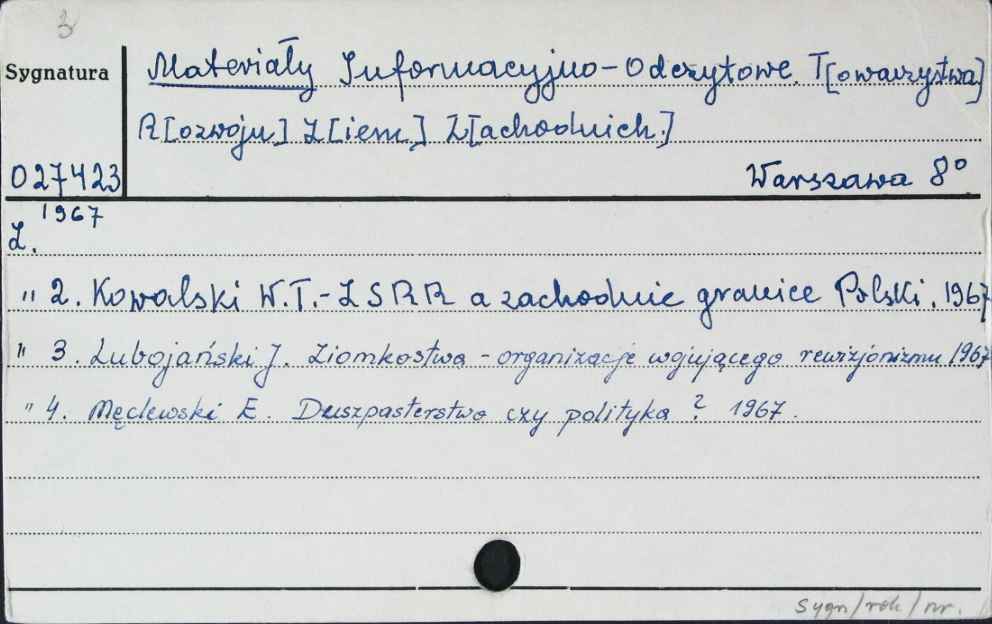 3
Sygnatura
Materiały Informacyjno-Odczytowe. T[owarzystwa]
R[ozwoju] Z[iem] Z[achodnich.]
027423
Warszawa 8°
1967
Z.
" 2. Kowalski W.T.-ZSRR a zachodnie granice Polski. 1967
" 3. Lubojański J. Ziomkostwa - organizacje wojującego rewizjonizmu 1967
" 4. Męclewski E. Duszpasterstwo czy polityka? 1967.
sygn/rok/nr.